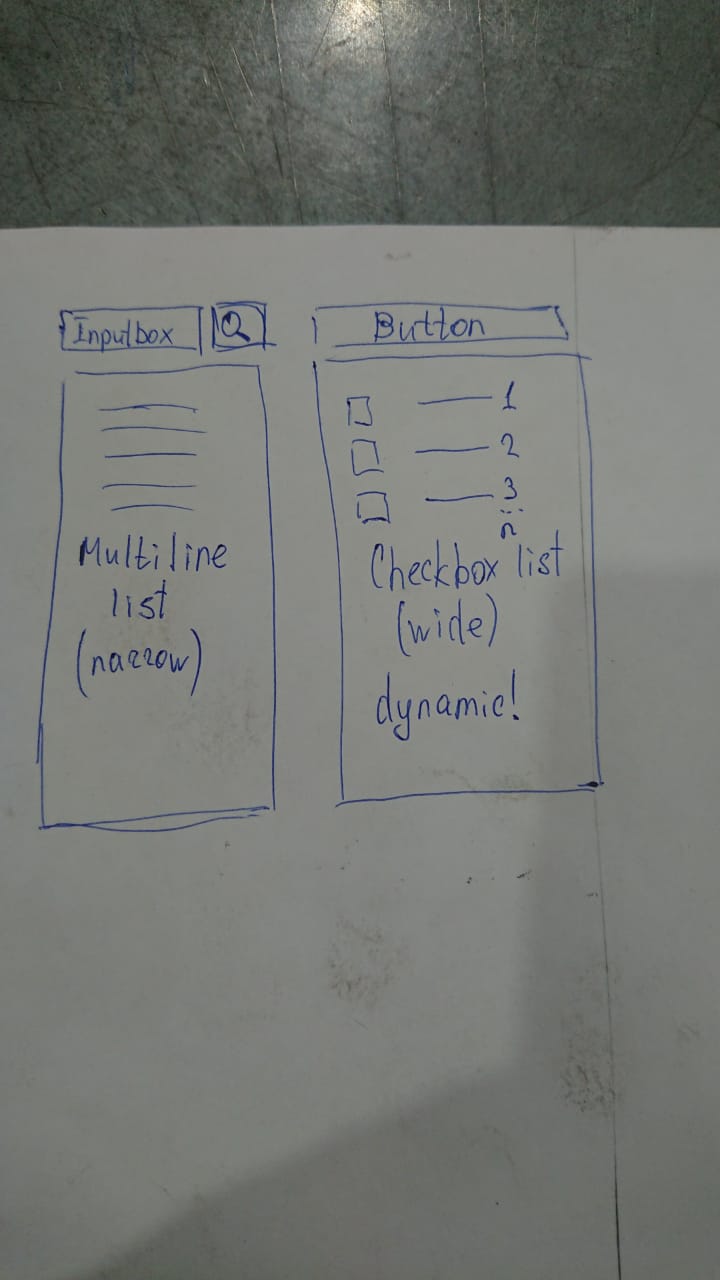 Inputbox
Button
1
2
3
...
n
Multiline
list
(narrow)
Checkbox list
(wide)
dynamic!